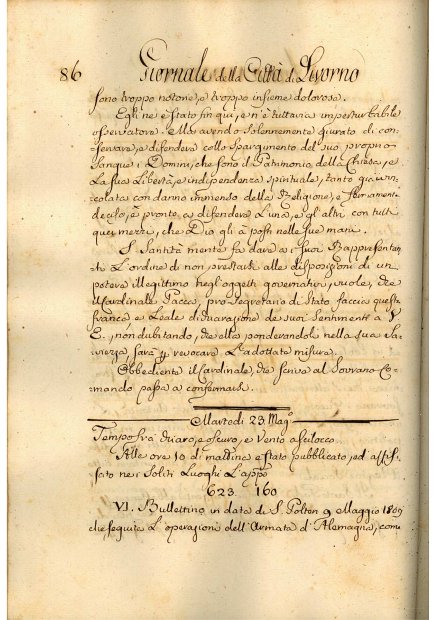 86 Giornale della Città di Livorno
sono troppo notorie, e troppo insieme dolorose.
Egli ne è stato fin qui, e n'è tuttavia imperturbabile
osservatore. Ma avendo solennemente giurato di con-
servare, e difendere collo spargimento del suo proprio
sangue i Dominj, che sono il Patrimonio della Chiesa, e
la sua Libertà, e indipendenza spirituale, tanto
colata con danno immenso della Religione, e
deciso, è pronto a difendere l'una, e gl'altri con tutti
quei mezzi, che Dio gli à posti nelle sue mani.
S. Santità mentre fa dare a i suoi Rappresentan-
ti l'ordine di non prestarsi alle disposizioni di un
potere illegittimo negl'oggetti governativi, vuole, che
il Cardinale Pacca, pro Segretario di Stato faccia questa
franca e leale dichiarazione de suoi sentimenti a V.
E., non dubitando, che ella ponderandole nella sua sa-
viezza farà revocare l'adottata misura.
Obbediente il Cardinale, che scrive al Sovrano Co-
mando passa a confermarsi.
Martedì 23 Mag.o
Tempo frà chiaro, e oscuro, e Vento a scilocco
Alle ore 10 di mattina è stato pubblicato, ed affis-
sato nei soliti Luoghi l'appo
623. 160
VI. Bullettino in data di S. Polten 9 Maggio 1809
che seguita l'operazione dell'Armata d'Alemagna, come